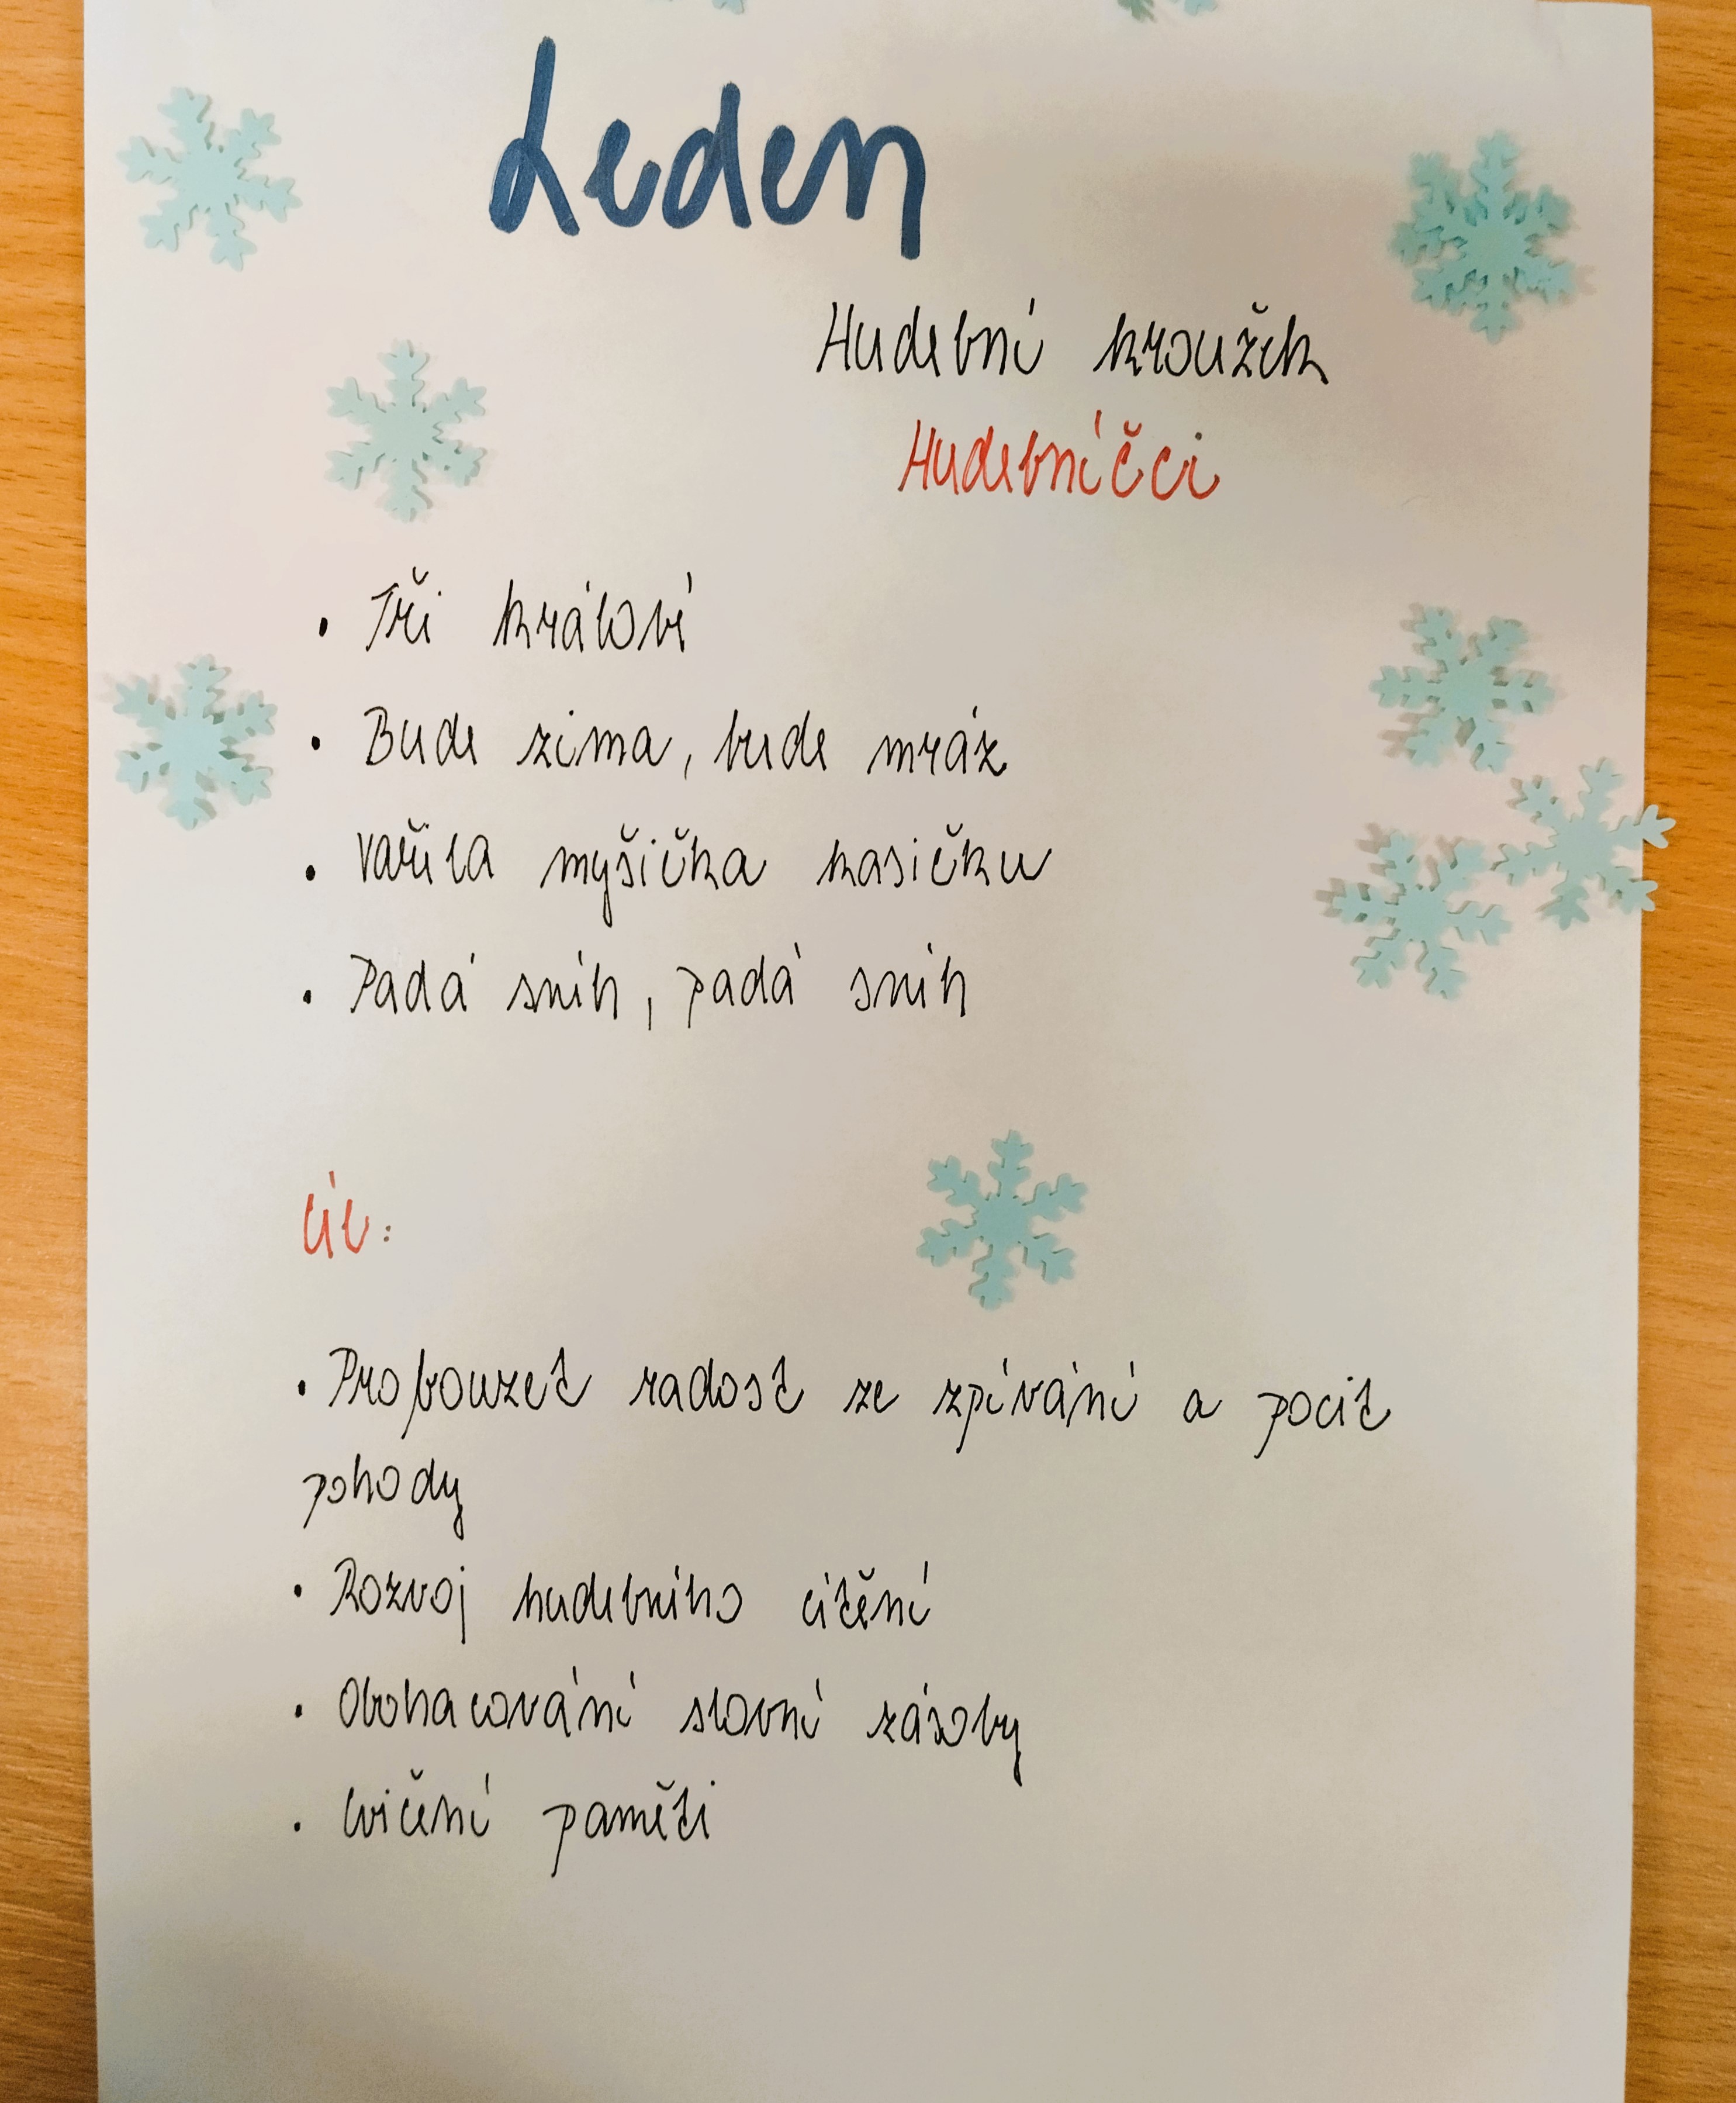 Leden
Hudební kroužek
Hudebníčci
• Tři králové
• Bude zima, bude mráz
• Vařila myšička kasičku
• Padá sníh, padá sníh
Cíl:
• Probouzet radost ze zpívání a pocit
pohody
• Rozvoj hudebního cítění
• Obohacování slovní zásoby
• Cvičení paměti